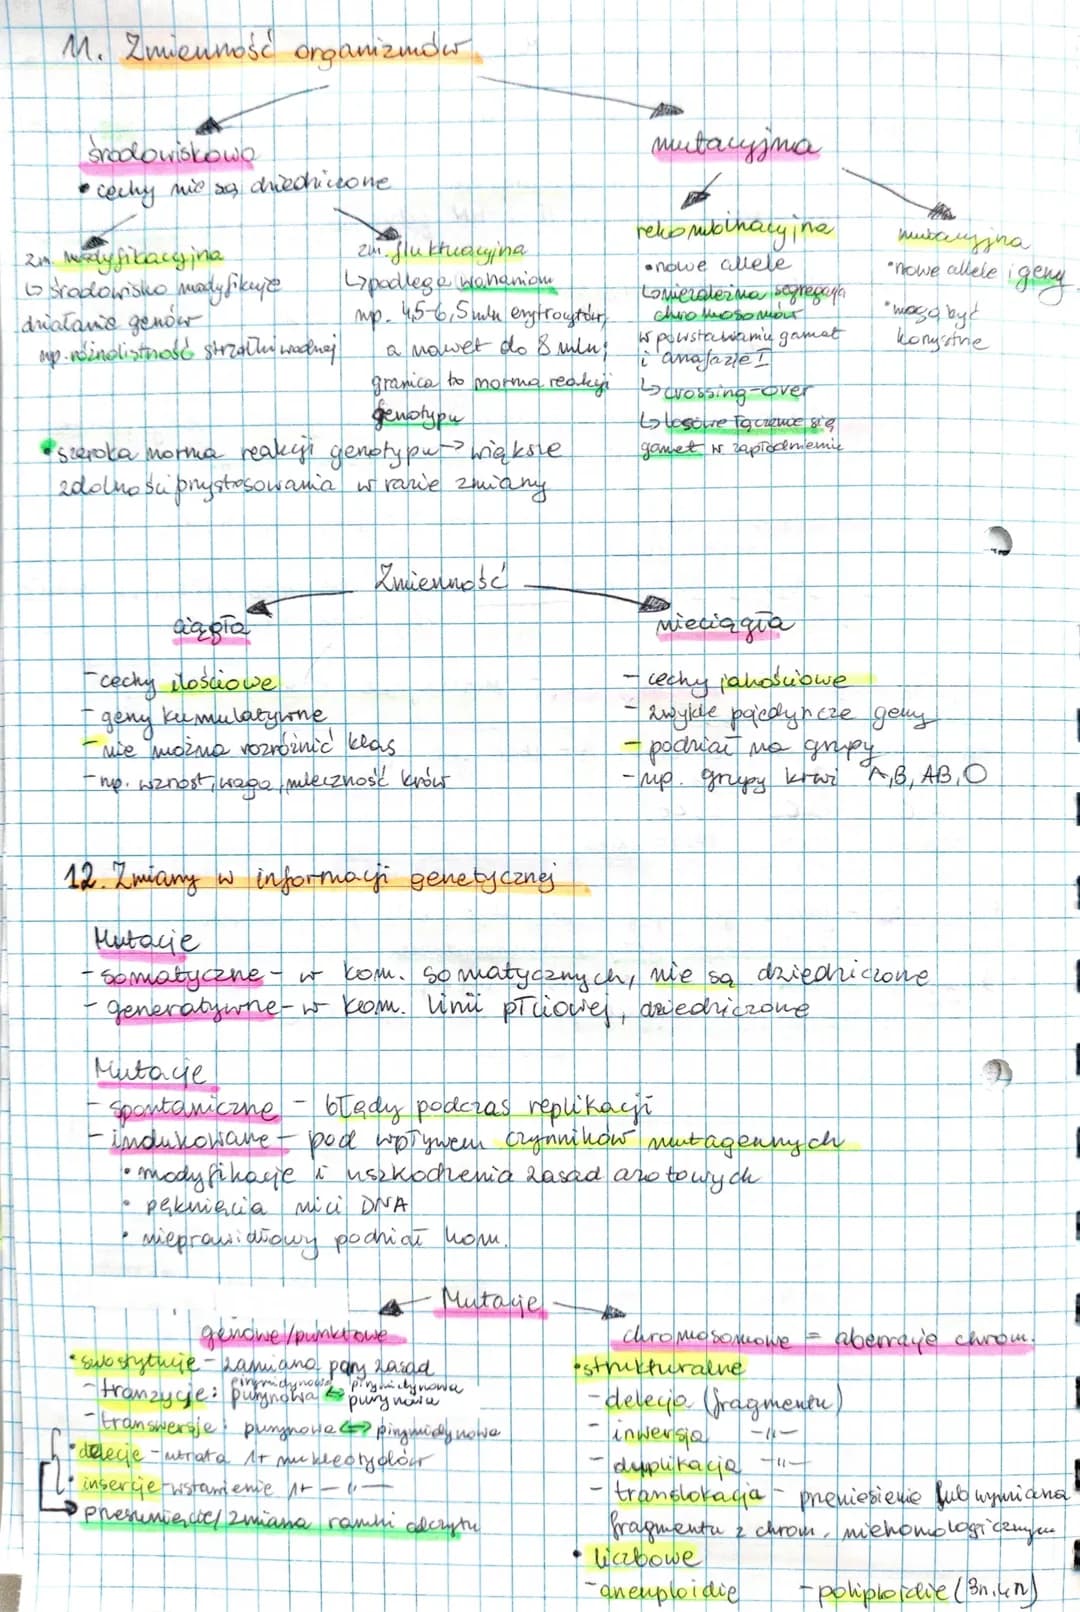 11. Zmienność organizmów
środowiskowa
• cechy nie są dziedziczone
zm. modyfikacyjna
↳ środowisko modyfikuje
działanie genów
np. różnolistność strzałki wodnej
zm. fluktuacyjna
↳ podlega wahaniom
np. 4,5-6,5 mln erytrocytów,
a nawet do 8 mln;
granica to norma reakcji
genotypu
• szeroka norma reakcji genotypu → większe
zdolności przystosowania w razie zmiany
mutacyjna
rekombinacyjna
• nowe allele
↳ niezależna segregacja
chromosomów
w powstawaniu gamet
i anafazie I
↳ crossing-over
↳ losowe łączenie się
gamet w zapłodnieniu
mutacyjna
• nowe allele i geny
• mogą być
korzystne
Zmienność
ciągła
- cechy ilościowe
- geny kumulatywne
- nie można rozróżnić klas
- np. wzrost, waga, mleczność krów
nieciągła
- cechy jakościowe
- zwykle pojedyncze geny
- podział na grupy
- np. grupy krwi A, B, AB, O
12. Zmiany w informacji genetycznej
Mutacje
- somatyczne - w kom. somatycznych, nie są dziedziczone
- generatywne - w kom. linii płciowej, dziedziczone
Mutacje
- spontaniczne - błędy podczas replikacji
- indukowane - pod wpływem czynników mutagennych
• modyfikacje i uszkodzenia zasad azotowych
• pęknięcia nici DNA
• nieprawidłowy podział kom.
Mutacje
genowe/punktowe
• substytucje - zamiana pary zasad
pirymidynowa pirymidynowa
- tranzycje: purynowa ↔ purynowa
- transwersje: purynowa ↔ pirymidynowa
• delecje - utrata 1+ nukleotydów
• insercje - wstawienie 1+ -"-
→ przesunięcie/zmiana ramki odczytu
chromosomowe = aberracje chrom.
• strukturalne
- delecja (fragmentu)
- inwersja -"-
- duplikacja -"-
- translokacja - przeniesienie lub wymiana
fragmentu z chrom. niehomologicznym
• liczbowe
- aneuploidie - poliploidie (3n, 4n)